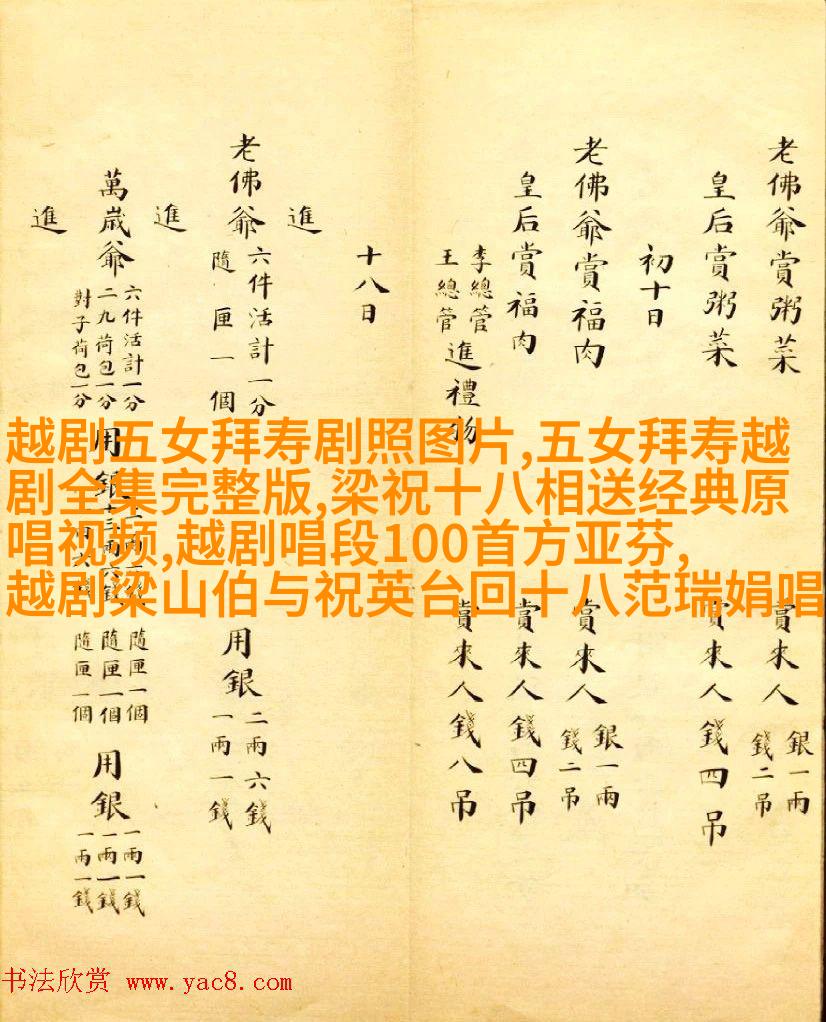 老佛爺賞粥菜 賞來人 銀一兩 錢二吊
皇后賞粥菜 賞來人錢四吊
初十日
老佛爺賞福肉 賞來人 銀一兩 錢二吊
皇后賞福肉 賞來人錢四吊
李總管 王總管 進禮物 賞來人錢八吊
十八日
進
老佛爺 六件活計一分 隨匣一個 用銀 二兩六錢 一兩一錢
進
萬歲爺 六件活計一分 二九荷包一分 對子荷包一分 用銀 隨匣一個 隨匣一個 隨匣一個 用銀 一兩一錢 一兩一錢 一兩一錢
進
越剧五女拜寿剧照图片,五女拜寿越
剧全集完整版,梁祝十八相送经典原
唱视频,越剧唱段100首方亚芬,
越剧梁山伯与祝英台回十八范瑞娟唱
书法欣赏 www.yac8.com